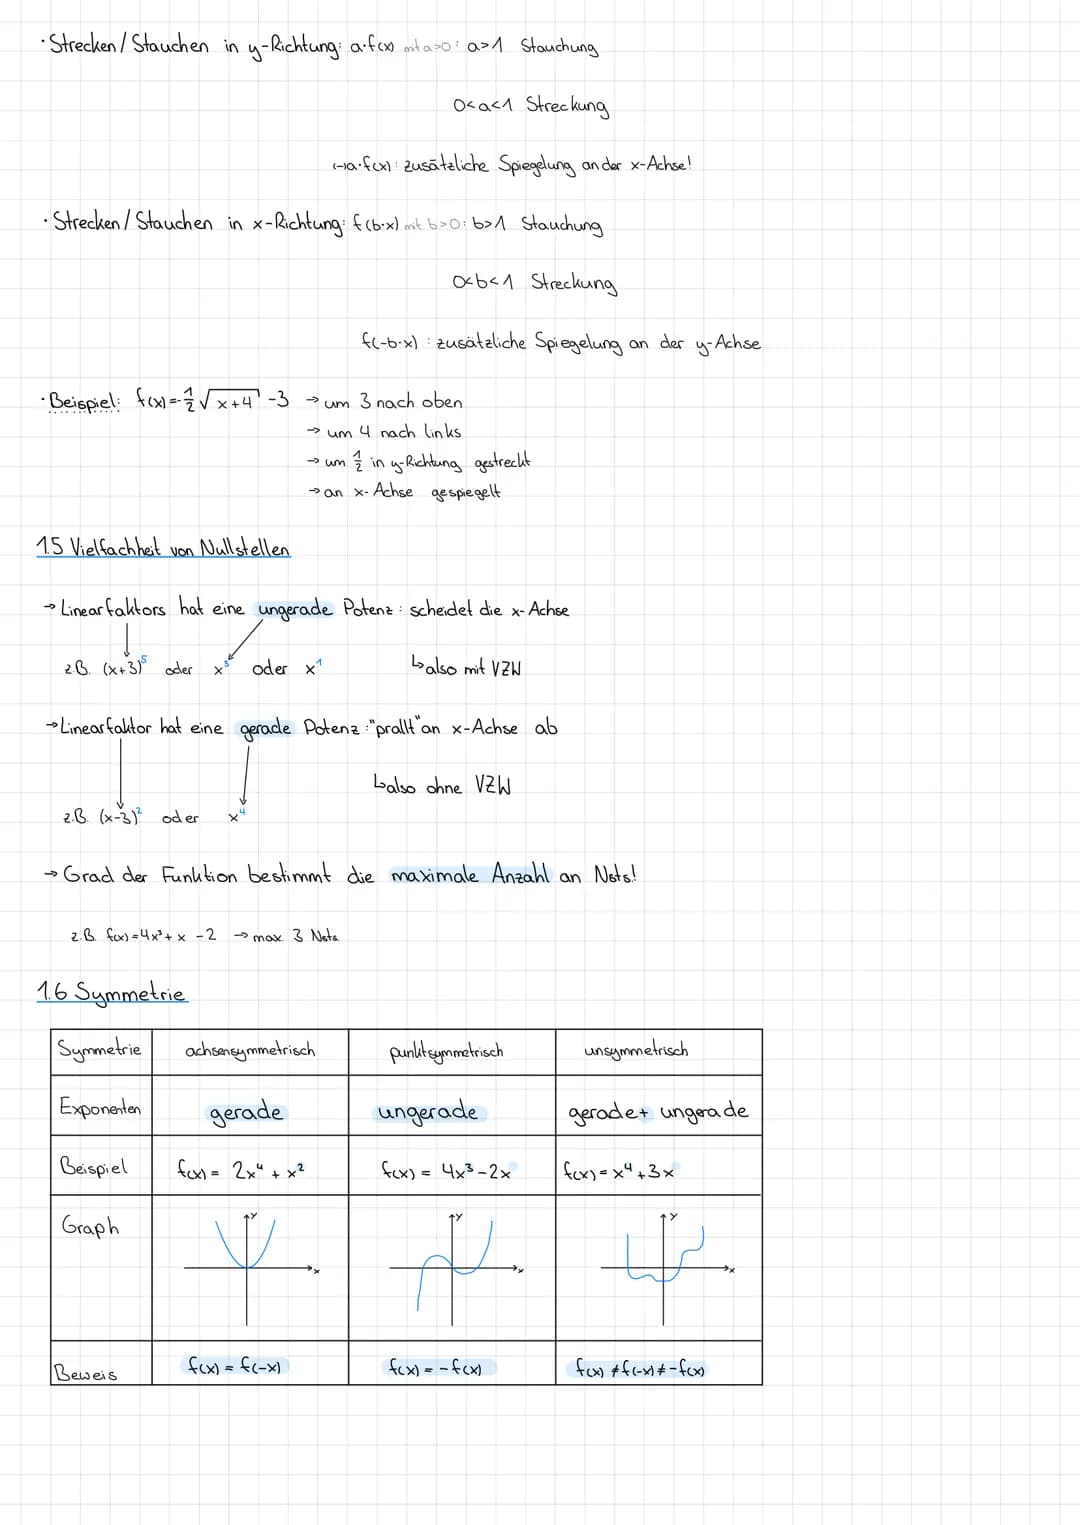 · Strecken / Stauchen in y-Richtung: a·f(x) mit a>0: a>1 Stauchung
0<a<1 Streckung
(-)a·f(x): zusätzliche Spiegelung an der x-Achse!
· Strecken / Stauchen in x-Richtung: f(b·x) mit b>0: b>1 Stauchung
0<b<1 Streckung
f(-b·x): zusätzliche Spiegelung an der y-Achse
· Beispiel: f(x)=-½√(x+4) -3 → um 3 nach oben
→ um 4 nach links
→ um ½ in y-Richtung gestreckt
→ an x-Achse gespiegelt
1.5 Vielfachheit von Nullstellen
→ Linearfaktors hat eine ungerade Potenz: scheidet die x-Achse
z.B. (x+3)⁵ oder x³ oder x¹ ↳ also mit VZW
→ Linearfaktor hat eine gerade Potenz: "prallt" an x-Achse ab
↳ also ohne VZW
z.B. (x-3)² oder x⁴
→ Grad der Funktion bestimmt die maximale Anzahl an Nsts!
z.B. f(x)=4x³+x-2 → max. 3 Nsts
1.6 Symmetrie
Symmetrie achsensymmetrisch punktsymmetrisch unsymmetrisch
Exponenten gerade ungerade gerade+ ungerade
Beispiel f(x) = 2x⁴ + x² f(x) = 4x³-2x f(x) = x⁴+3x
Graph y x y x y x
Beweis f(x) = f(-x) f(x) = -f(x) f(x) ≠ f(-x) ≠ -f(x)